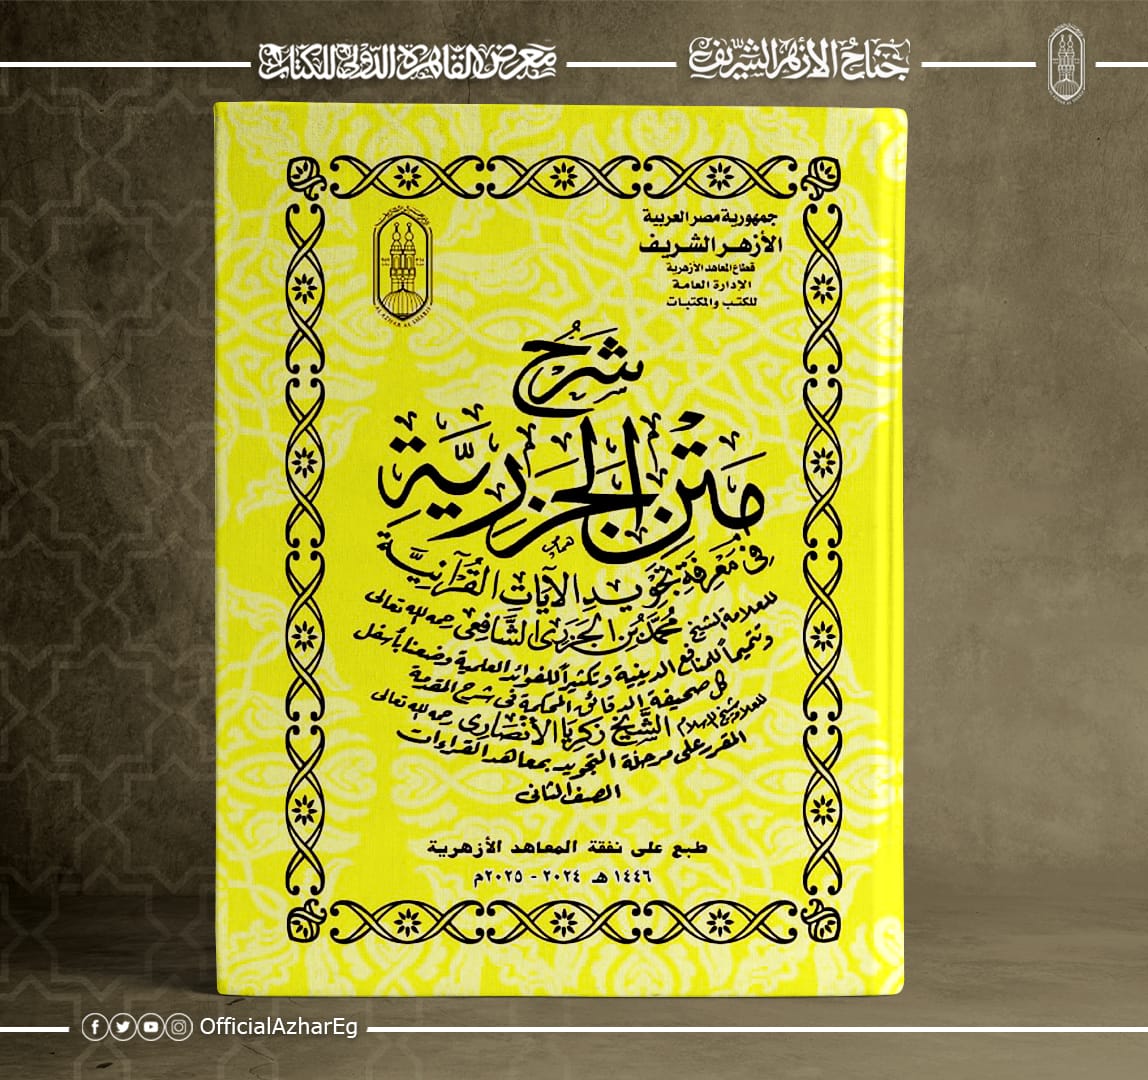 جناح الأزهر الشريف
معرض القاهرة الدولي للكتاب
جمهورية مصر العربية
الأزهر الشريف
قطاع المعاهد الأزهرية
الإدارة العامة
للكتب والمكتبات
AL AZHAR AL SHARIF
شرح
متن الجزرية
فى معرفة تجويد الآيات القرآنية
للعلامة الشيخ محمد بن الجزرى الشافعى رحمه الله تعالى
وتتميماً للمنافع الدينية وتكثيراً للفوائد العلمية وضعنا بأسفل
كل صحيفة الدقائق المحكمة فى شرح المقدمة
للعلامة شيخ الإسلام الشيخ زكريا الأنصارى رحمه الله تعالى
المقرر على مرحلة التجويد بمعاهد القراءات
الصف الثانى
طبع على نفقة المعاهد الأزهرية
١٤٤٦ هـ ٢٠٢٤ - ٢٠٢٥م
OfficialAzharEg